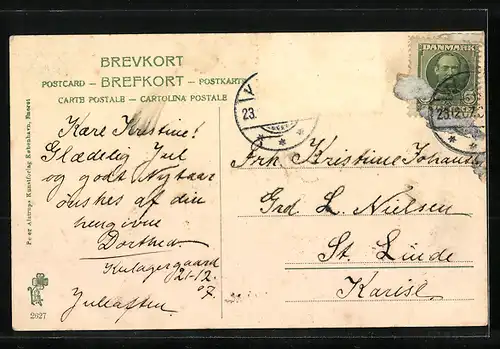 BREVKORT
POSTCARD — BREFKORT — POSTKARTE
CARTE POSTALE — CARTOLINA POSTALE
DANMARK
5
23.
23.12.07
Kære Kristine!
Glædelig Jul
og godt Nytaar
ønskes af din
hengivne
Dorthea
21-12
07.
Juleaften
Frk. Kristine
Grd. L. Nielsen
St. Linde
Karise
Peter Alstrups Kunstforlag København, Eneret
2627